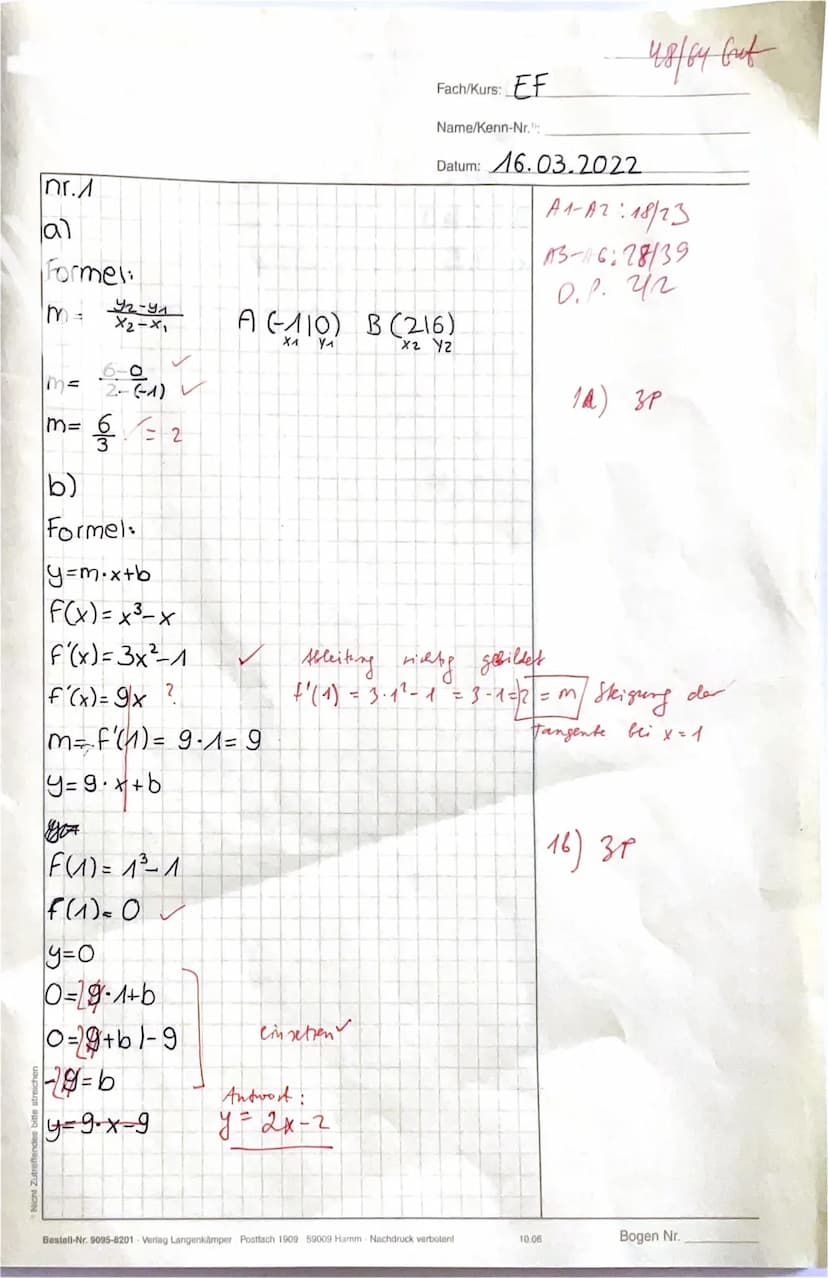 48/64 Gut
Fach/Kurs: EF
Name/Kenn-Nr.¹⁾:
Datum: 16.03.2022
nr.1
A1-A2: 18/23
a)
A3-A6: 28/39
Formel:
D.P. 2/2
m = y₂-y₁ / x₂-x₁ A (-1|0) B (2|6)
x₁ y₁ x₂ y₂
m = 6-0 / 2-(-1) ✓ ✓
1a) 3P
m = 6/3 ✓ = 2
b)
Formel:
y=m·x+b
f(x) = x³-x
f'(x) = 3x²-1 ✓ Ableitung richtig gebildet
f'(x) = 9x ? f'(1) = 3·1²-1 = 3-1 = 2 = m Steigung der
Tangente bei x=1
m = f'(1) = 9·1 = 9
y = 9·x+b
1b) 3P
f(1) = 1³-1
f(1) = 0 ✓
y=0
0 = 2 9·1+b
0 = 2 9+b |-9 einsetzen ✓
-2 9 = b
Antwort:
y=9·x-9 y = 2x-2
Nicht Zutreffendes bitte streichen
Bestell-Nr. 9095-8201 · Verlag Langenkämper Postfach 1909 59009 Hamm · Nachdruck verboten! 10.06 Bogen Nr.